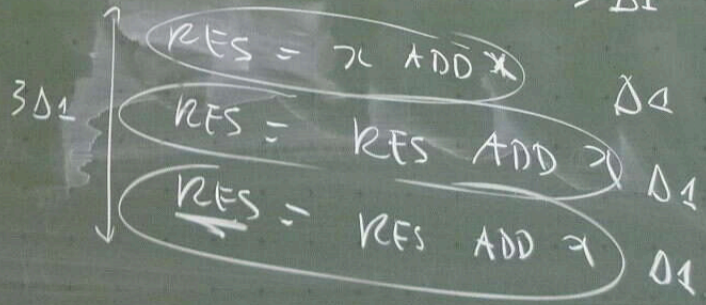 Δ1
RES = x ADD x
3Δ1
Δ1
RES = RES ADD x
Δ1
RES = RES ADD x
Δ1